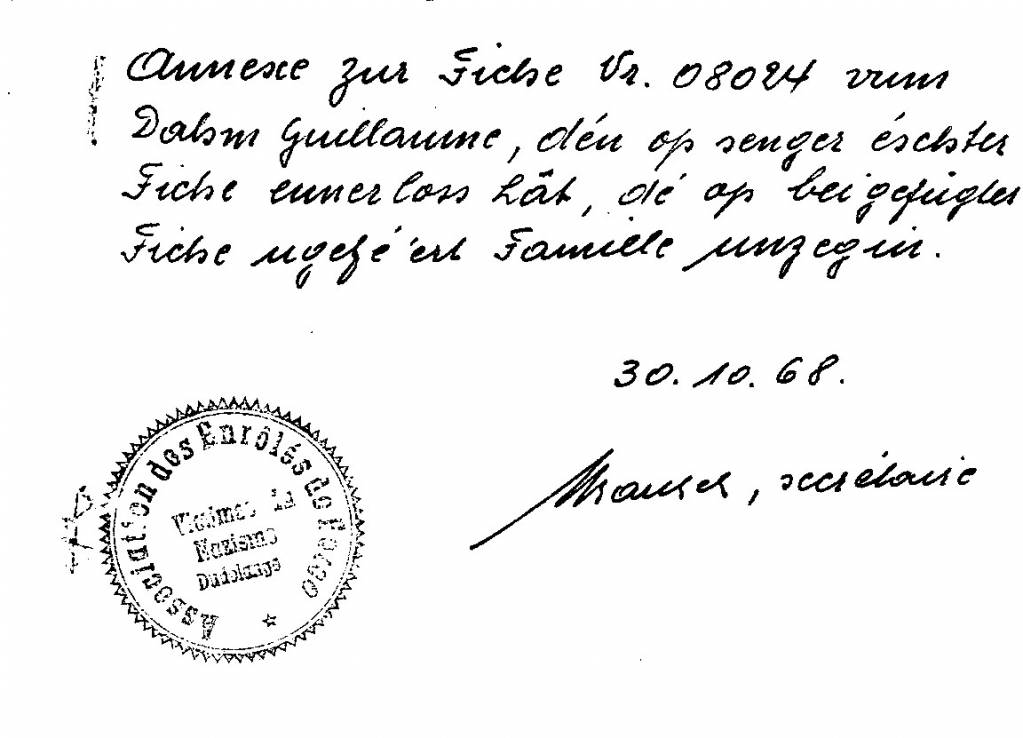 Annexe zur Fiche Nr. 08024 vum
Dahm Guillaume, dén op senger éischter
Fiche ennerloss hât, dé op beigefügter
Fiche ugefé'ert Famille unzeginn.
30.10.68.
, secrétaire
Association des Enrôlés de Force
Victimes du
Nazisme
Dudelange